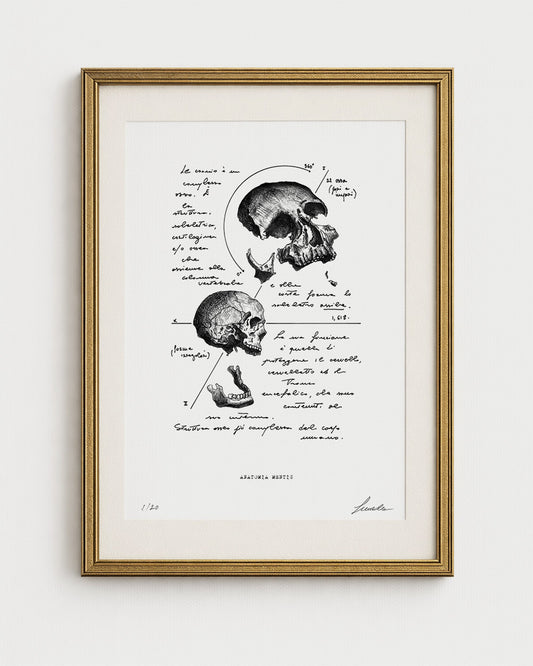 Il cranio è un
complesso
osseo. È
la
struttura
scheletrica,
cartilaginea
e/o ossea
che
assieme alla
colonna
vertebrale
e alle
coste forma lo
scheletro assile.
1,618.
360°
I
22 ossa
(pari e
impari)
0°
X
(forma
irregolare)
II
La sua funzione
è quella di
proteggere il cervello,
cervelletto ed il
tronco
encefalico, che sono
contenuti al
suo interno.
Struttura ossea più complessa del corpo
umano.
ANATOMIA MENTIS
1/20